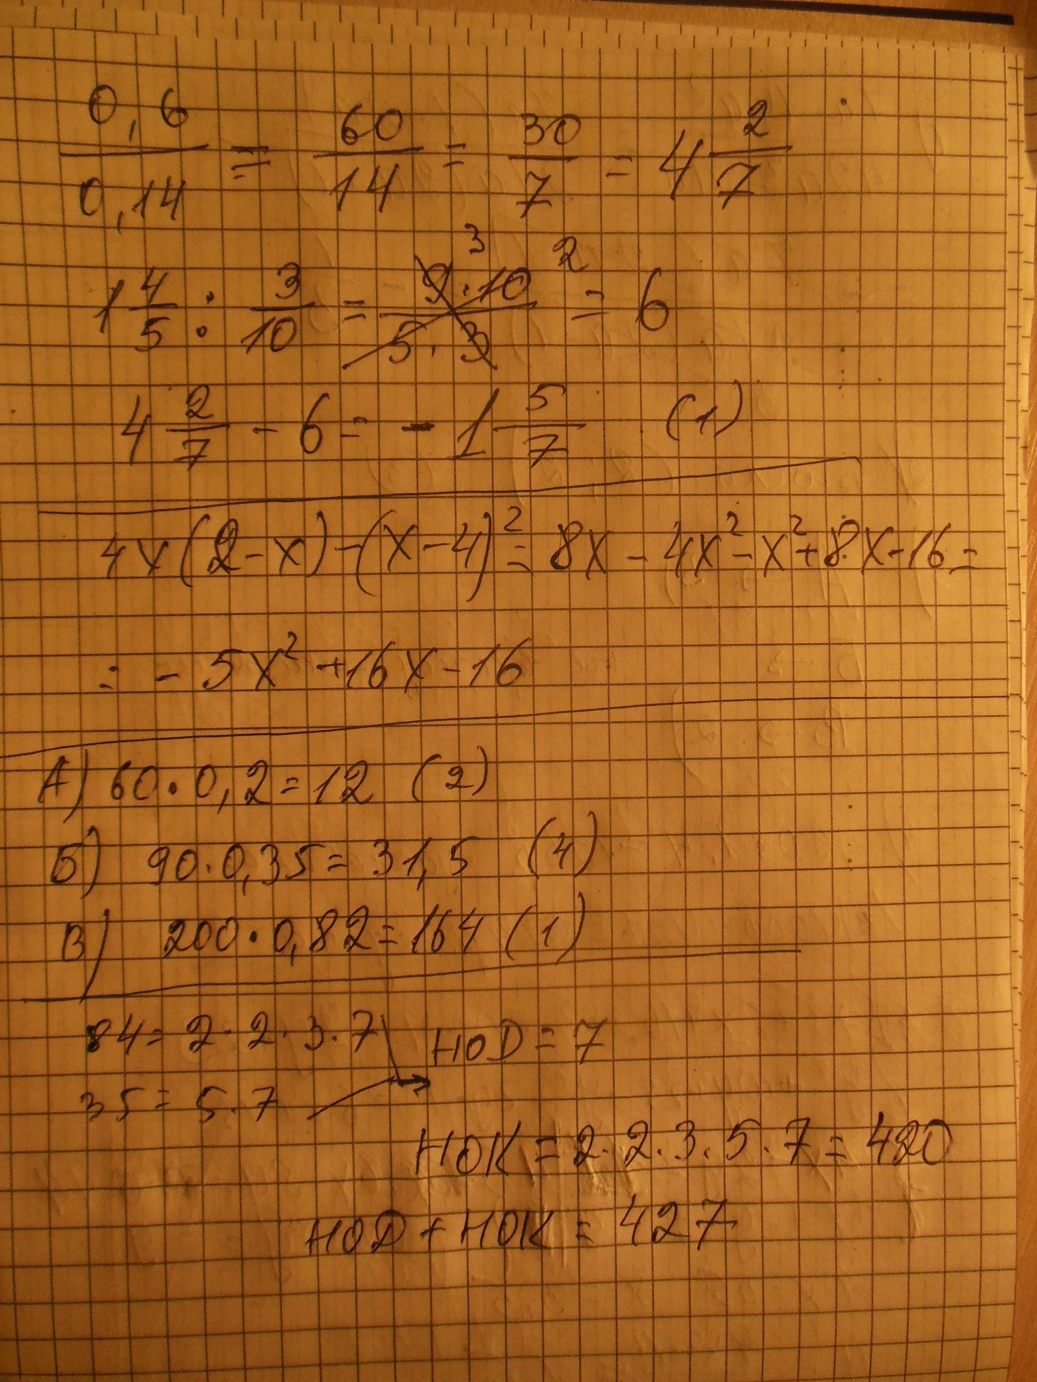 0,6/0,14 = 60/14 = 30/7 = 4 2/7
1 4/5 : 3/10 = 9³·10²/5·3 = 6
4 2/7 - 6 = - 1 5/7 (1)
4x(2-x)-(x-4)²= 8x - 4x²-x²+8x-16=
= - 5x²+16x-16
А) 60·0,2=12 (2)
Б) 90·0,35=31,5 (4)
В) 200·0,82=164 (1)
84=2·2·3·7
НОD=7
35=5·7
НОК=2·2·3·5·7=420
НОD+НОК= 427